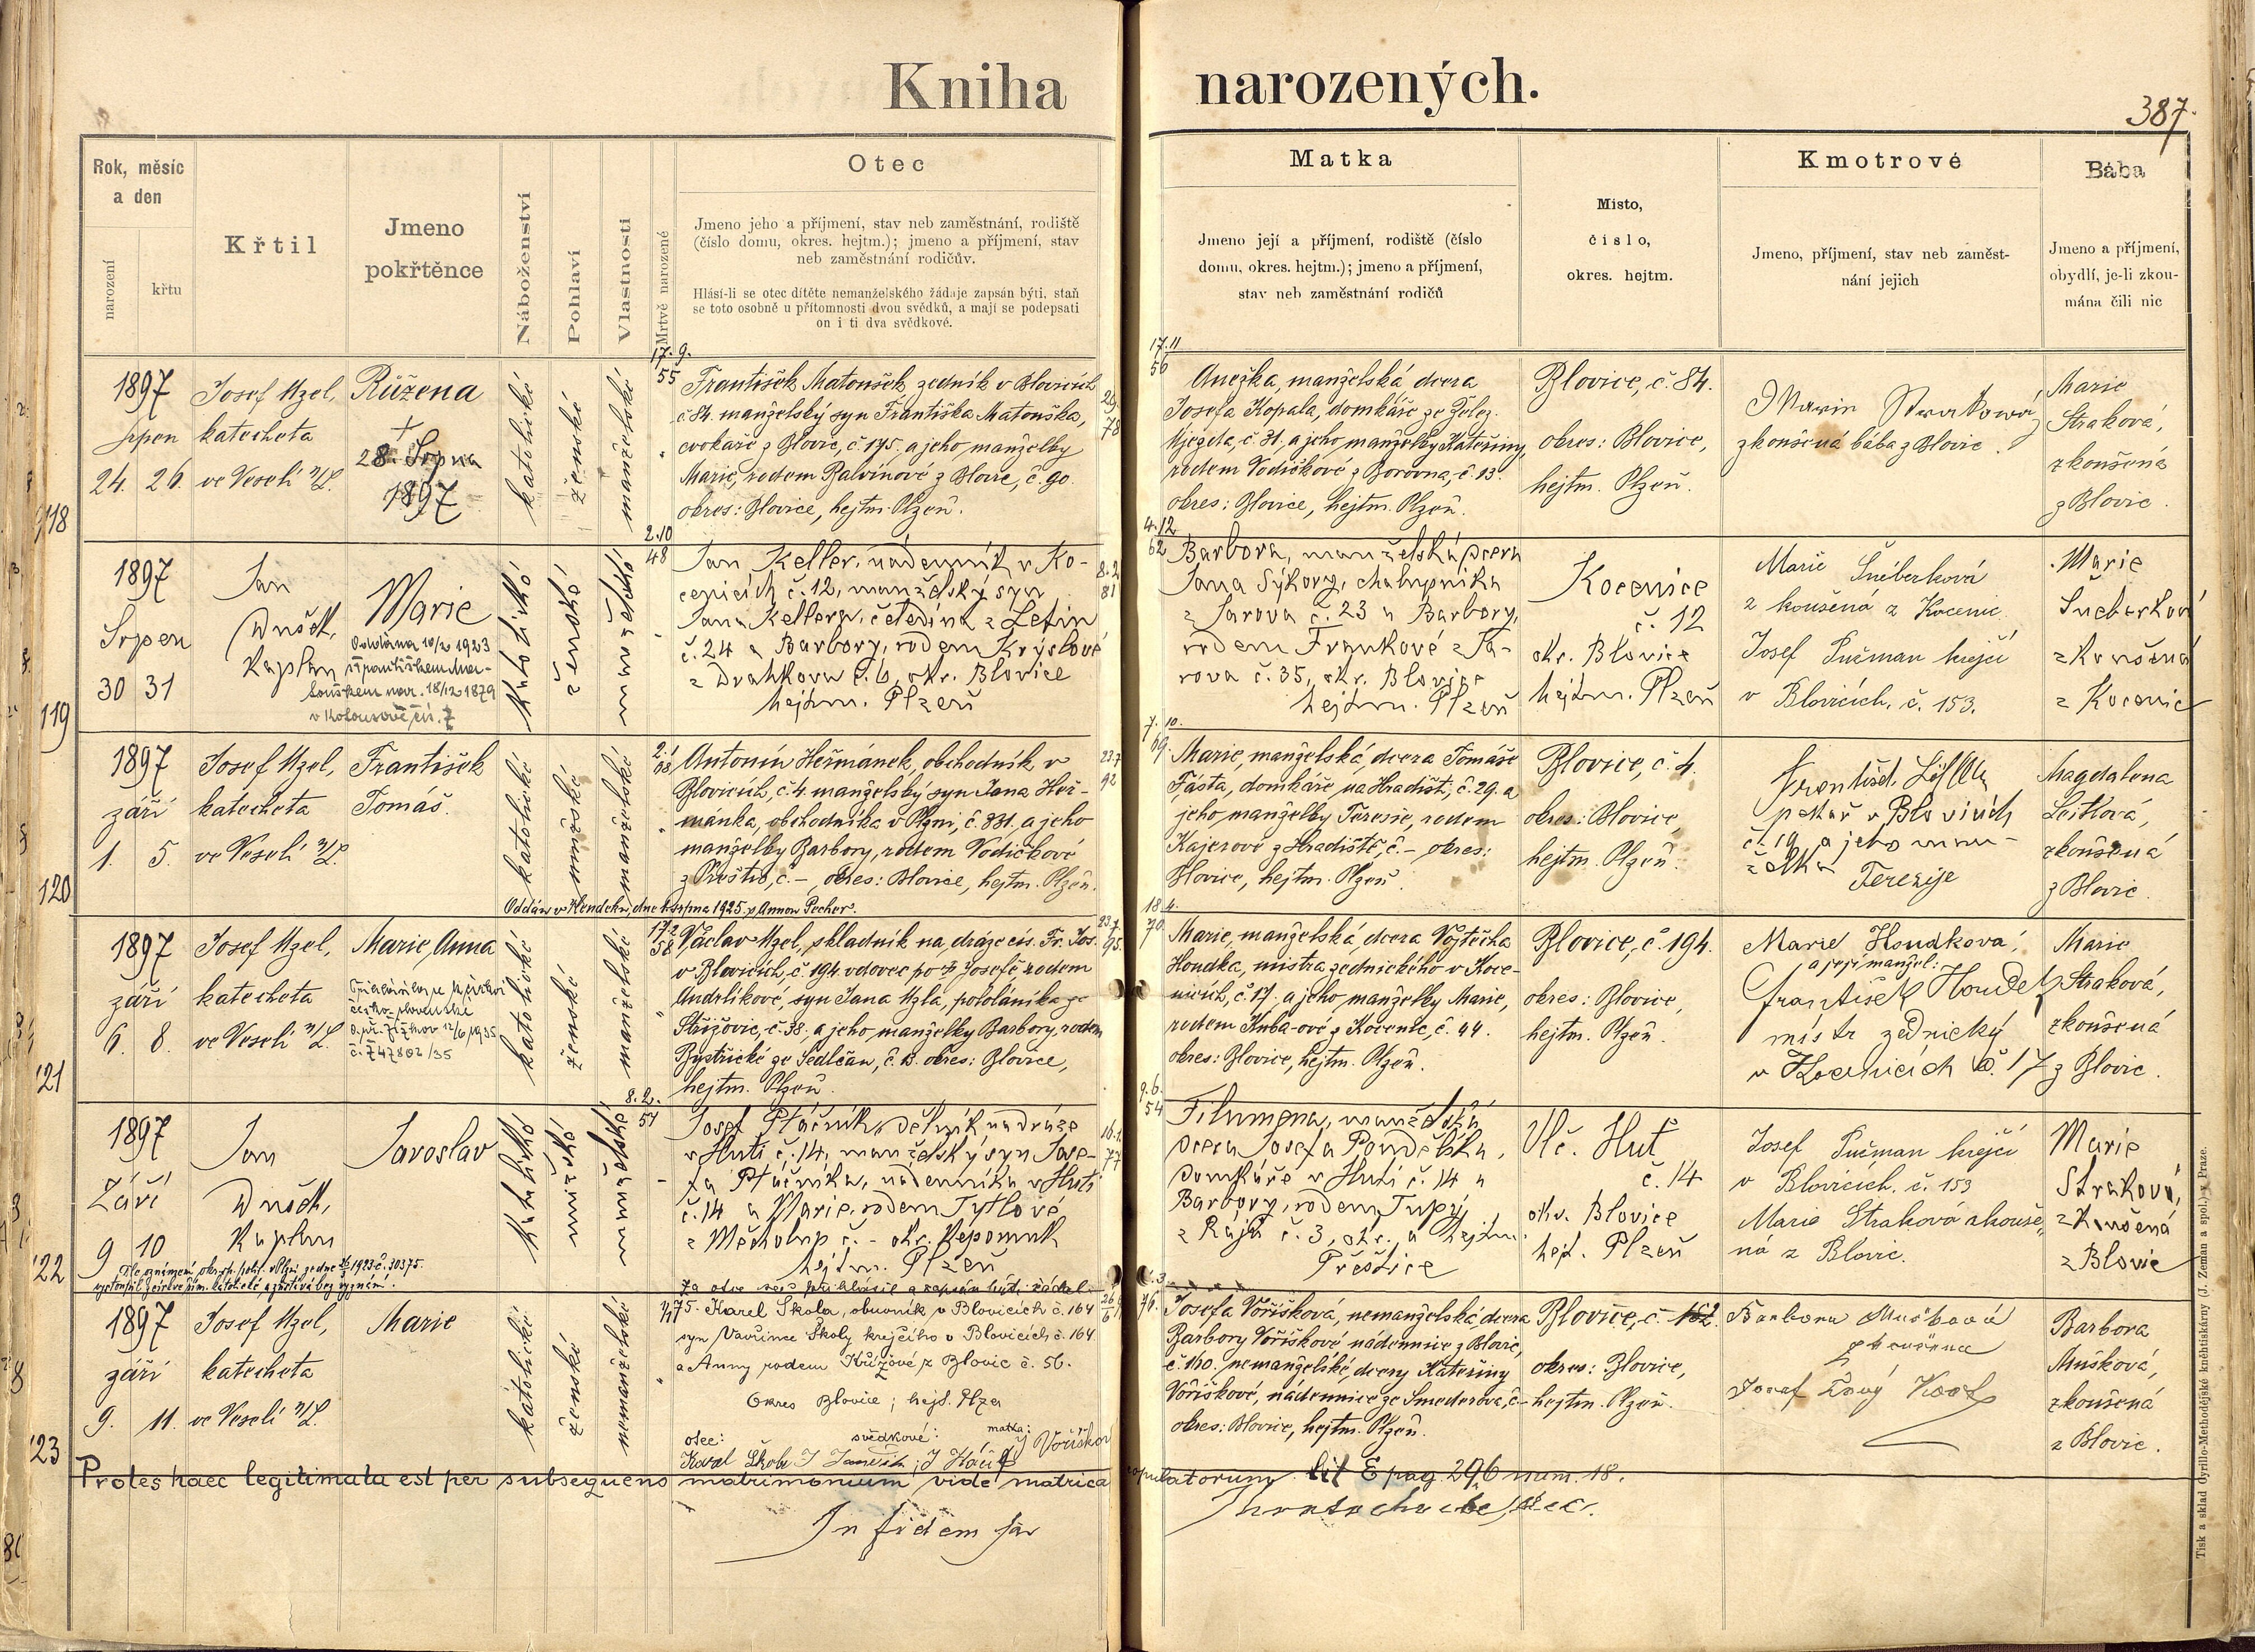 Kniha narozených.
387.
Rok, měsíc
a den
narození
křtu
Křtil
Jmeno
pokřtěnce
Náboženství
Pohlaví
Vlastnosti
Mrtvě narozené
Otec
Jmeno jeho a příjmení, stav neb zaměstnání, rodiště
(číslo domu, okres. hejtm.); jmeno a příjmení, stav
neb zaměstnání rodičův.
Hlásí-li se otec dítěte nemanželského žádaje zapsán býti, staň
se toto osobně u přítomnosti dvou svědků, a mají se podepsati
on i ti dva svědkové.
Matka
Jmeno její a příjmení, rodiště (číslo
domu, okres. hejtm.); jmeno a příjmení,
stav neb zaměstnání rodičů
Misto,
číslo,
okres. hejtm.
Kmotrové
Jmeno, příjmení, stav neb zaměst-
nání jejich
Bába
Jmeno a příjmení,
obydlí, je-li zkou-
mána čili nic
1897
srpen
24. 26.
Josef Uzel,
katecheta
ve Veselí n/L.
Růžena
+
28. Srpna
1897
katolické
ženské
manželské
17. 9.
55
František Matoušek, zedník v Blovicích
č. 84. manželský syn Františka Matouška,
cvokaře z Blovic, č. 175. a jeho manželky
Marie, rodem Balvínové z Blovic, č. 90.
okres: Blovice, hejtm. Plzeň.
17. 11
56
Anežka, manželská dcera
Josefa Kopala, domkáře ze Želez.
Újezda, č. 31. a jeho manželky Kateřiny,
rodem Vodičkové z Borovna, č. 13.
okres: Blovice, hejtm. Plzeň.
Blovice, č. 84.
okres: Blovice,
hejtm. Plzeň.
Marie Strakowá
zkoušená bába z Blovic.
Marie
Straková,
zkoušená
z Blovic.
119
1897
Srpen
30 31
Jan
Dušek,
Kaplan
Marie
Oddána 10/2 1923
s Františkem Mat-
ouškem nar. 18/12 1879
v Kolousově čís. 7
katolické
ženské
manželské
2. 10
48
Jan Keller, nádenník v Ko-
cenicích č. 12, manželský syn
Jana Kellera, čeledína z Letin
č. 24 a Barbory, rodem Krýslové
z Drahkova č. 6, okr. Blovice
hejtm. Plzeň
8. 2
81
4. 12
62
Barbora, manželská dcera
Jana Sýkory, chalupníka
z Jarova č. 23 a Barbory,
rodem Frankové z Ja-
rova č. 35, okr. Blovice
hejtm. Plzeň
Kocenice
č. 12
okr. Blovice
hejtm. Plzeň
Marie Šneberková
zkoušená z Kocenic
Josef Pučman krejčí
v Blovicích, č. 153.
Marie
Šneberková
zkoušená
z Kocenic
120
1897
září
1. 5.
Josef Uzel,
katecheta
ve Veselí n/L.
František
Tomáš.
katolické
mužské
manželské
Antonín Heřmánek, obchodník v
Blovicích, č. 4. manželský syn Jana Heř-
mánka, obchodníka v Plzni, č. 831. a jeho
manželky Barbory, rodem Vodičkové
z Přeštic, č. – okres: Blovice, hejtm. Plzeň.
7. 10.
69.
Marie, manželská dcera Tomáše
Fasta, domkáře na Hradišti, č. 29. a
jeho manželky Terezie, rodem
Kajerové z Hradiště, č. – okres:
Blovice, hejtm. Plzeň.
Blovice, č. 4.
okres: Blovice,
hejtm. Plzeň.
pekař v Blovicích
č. 19 a jeho man-
želka Terezije
Magdalena
zkoušená
z Blovic.
121
1897
září
6. 8.
Josef Uzel,
katecheta
ve Veselí n/L.
Marie, Anna
katolické
ženské
manželské
17. 2
58
Václav Uzel, skladník na dráze cís. Fr. Jos.
v Blovicích, č. 194. vdovec po † Josefě, rodem
Andrlíkové, syn Jana Uzla, pololáníka ze
Střížovic, č. 38. a jeho manželky Barbory, rodem
Bystřické ze Sedlčan, č. 13. okres: Blovice,
hejtm. Plzeň.
18. 4.
70.
Marie, manželská dcera Vojtěcha
Houdka, mistra zednického v Koce-
nicích, č. 17. a jeho manželky Marie,
rodem Kuba-ové z Kocenic, č. 44.
okres: Blovice, hejtm. Plzeň.
Blovice, č. 194.
okres: Blovice,
hejtm. Plzeň.
Marie Houdková,
a její manžel:
František Houdek
mistr zednický
v Kocenicích č. 17
Marie
Straková,
zkoušená
z Blovic.
122
1897
Září
9 10
Jan
Dušek,
Kaplan
Jaroslav
katolické
mužské
manželské
8. 2.
51
Josef Ptáčník, dělník na dráze
v Huti č. 14, manželský syn Jose-
fa Ptáčníka, nádenníka v Huti
č. 14 a Marie, rodem Tytlové
z Měcholup č. – okr. Nepomuk
hejtm. Plzeň
9. 6.
54
Filumena, manželská
dcera Josefa Pondělíka,
domkáře v Huti č. 14 a
Barbory, rodem Tupý,
z Kajh č. 3, okr. a hejtm.
Přeštice
Vlč. Huť
č. 14
okr. Blovice
hejt. Plzeň
Josef Pučman krejčí
v Blovicích, č. 153
Marie Straková zkouše-
ná z Blovic.
Marie
Straková,
zkoušená
z Blovic
123
1897
září
9. 11.
Josef Uzel,
katecheta
ve Veselí n/L.
Marie
katolické
ženské
nemanželské
Karel Škola, obuvník v Blovicích č. 164
syn Vavřince Školy krejčího v Blovicích č. 164.
a Anny rodem Krůžové z Blovic č. 56.
Okres Blovice; hejt. Plzeň
otec:
svědkové:
matka:
Karel Škola
J Voříšková
Josefa Voříšková, nemanželská dcera
Barbory Voříškové, nádennice z Blovic,
č. 160. nemanželské dcery Kateřiny
Voříškové, nádennice ze Smederova, č. –
okres: Blovice, hejtm. Plzeň.
Blovice, č. 162.
okres: Blovice,
hejtm. Plzeň.
Barbora Mušková
zkoušená
Barbora
Mušková,
zkoušená
z Blovic.
Proles haec legitimata est per subsequens matrimonium vide matrica copulatorum lit E pag. 296 num. 18.
In fidem
Tisk a sklad Cyrillo-Methodějské knihtiskárny (J. Zeman a spol.) v Praze.